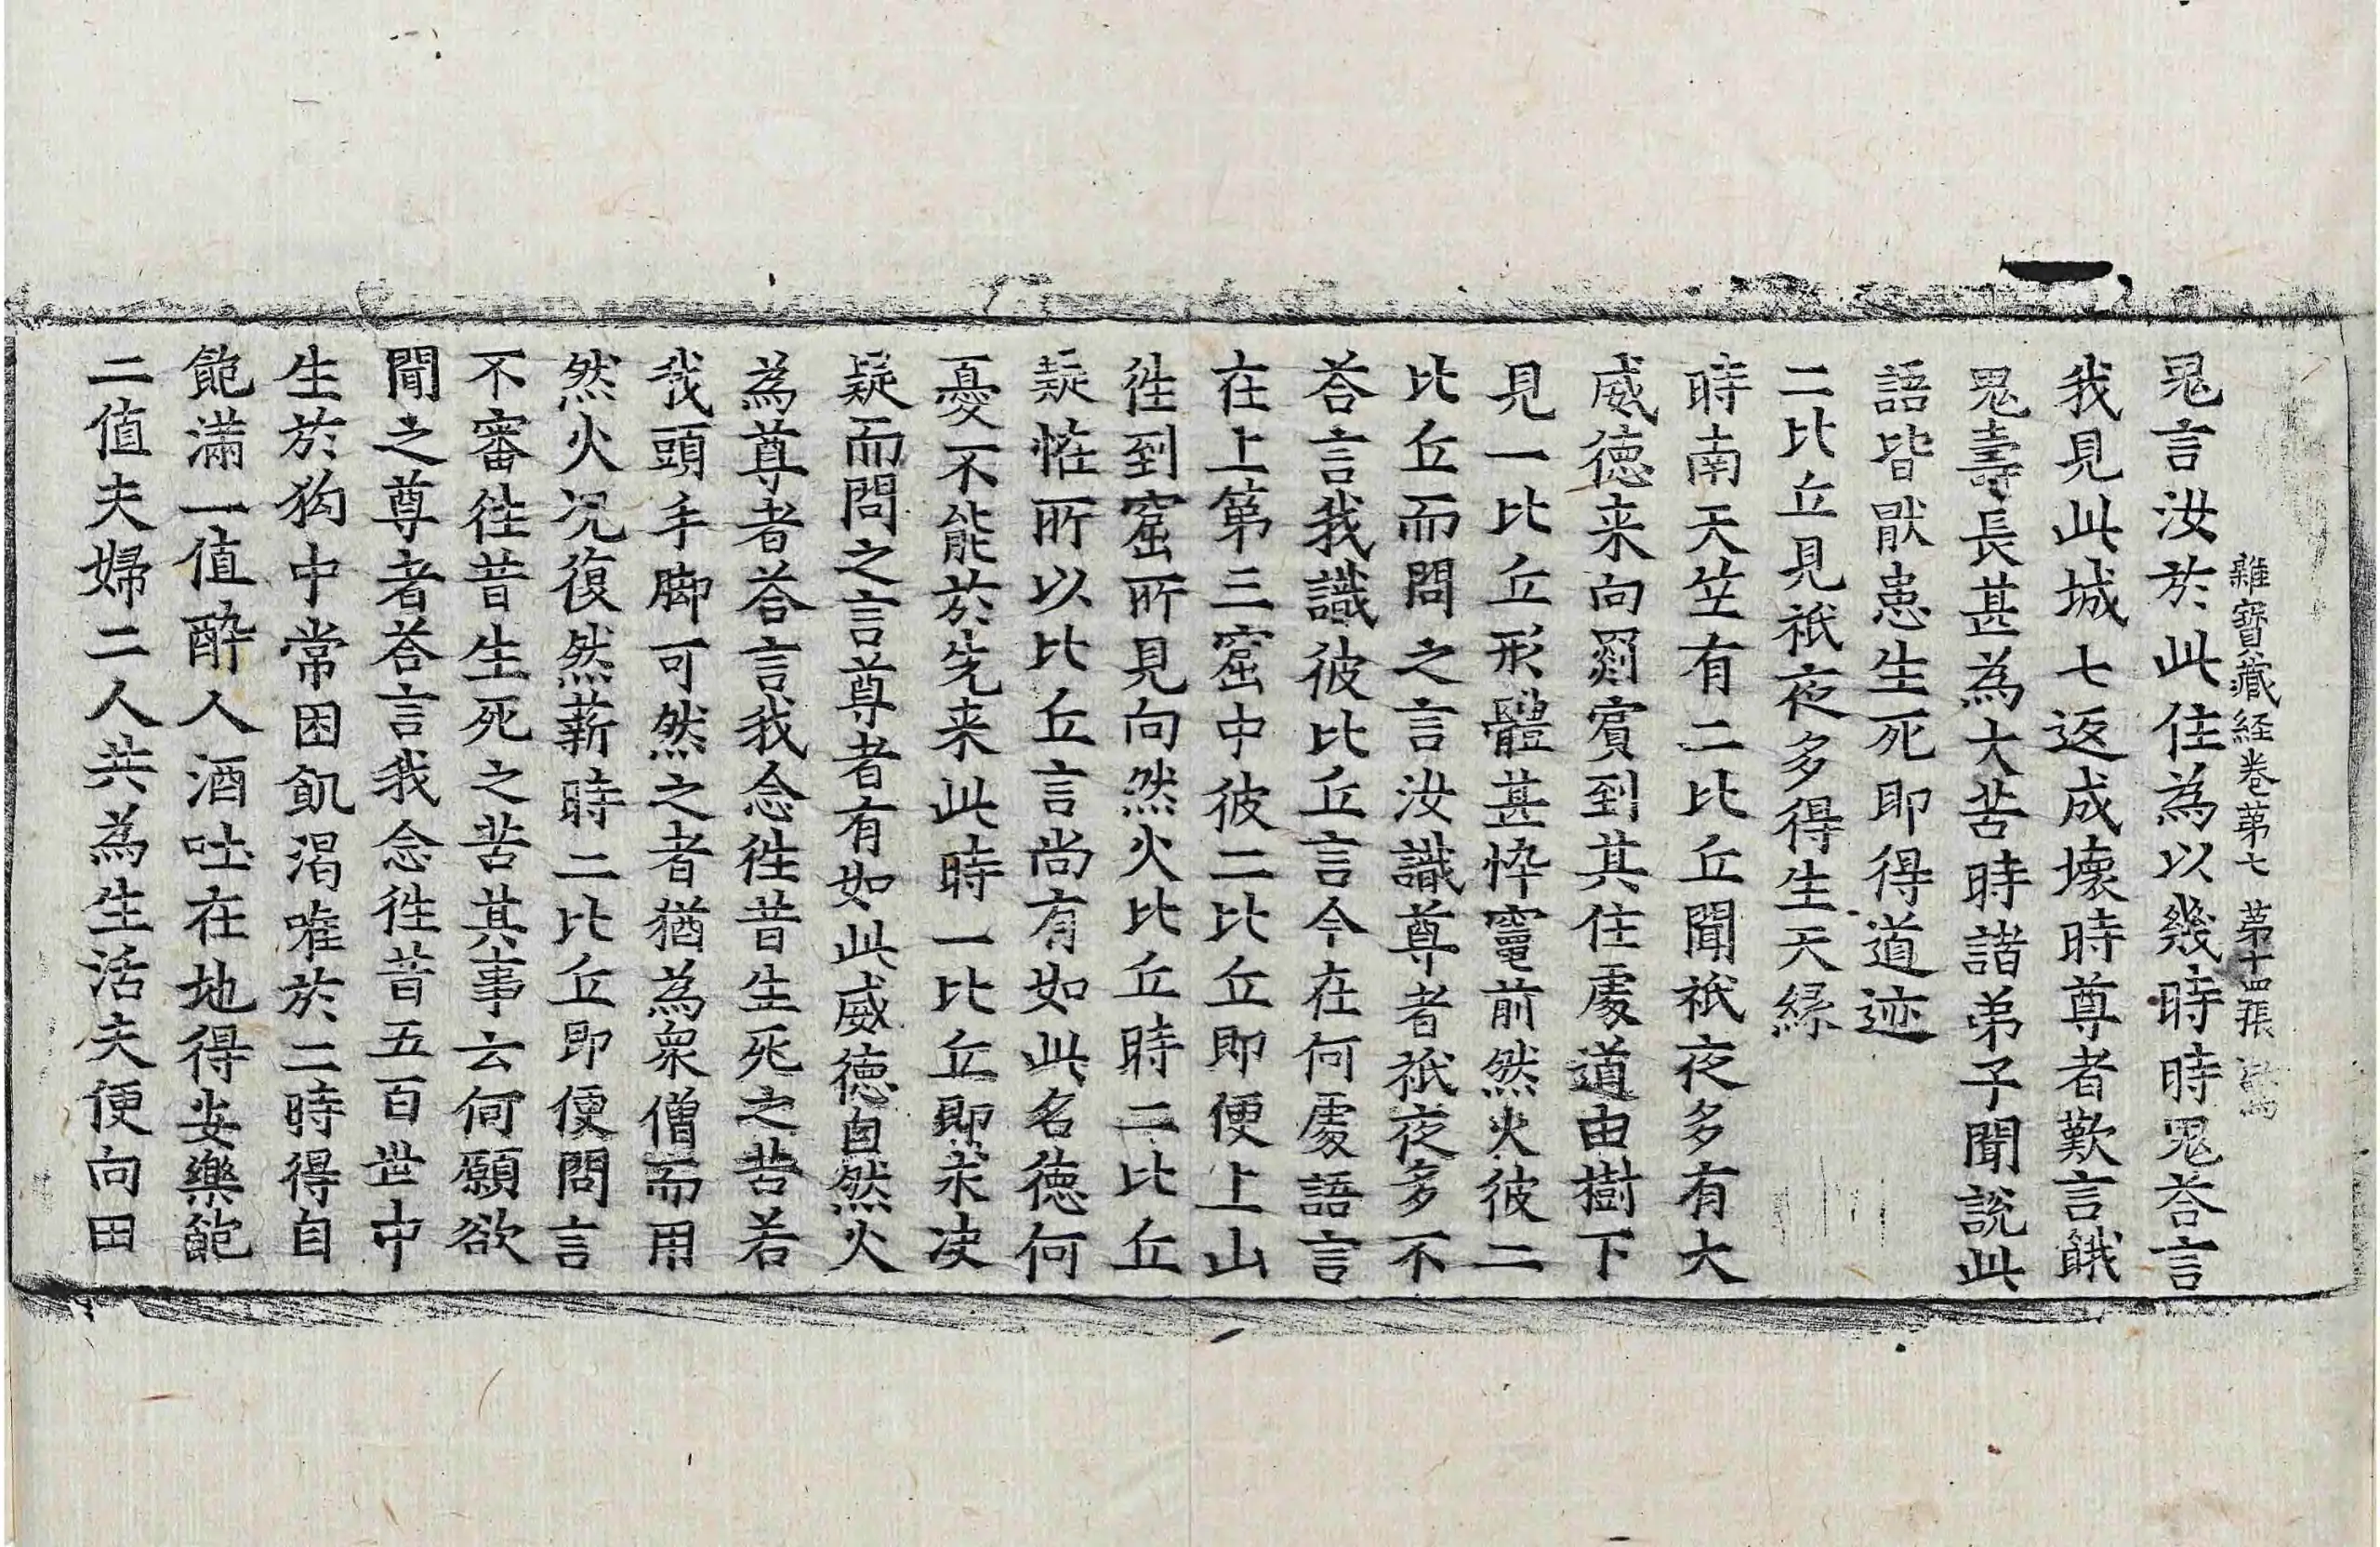 雜寶藏経卷第七 第十四張
鬼言汝於此住為以幾時時鬼荅言
我見此城七返成壞時尊者歎言餓
鬼壽長甚為大苦時諸弟子聞說此
語皆猒患生死即得道迹
二比丘見祇夜多得生天緣
時南天笁有二比丘聞祇夜多有大
威德来向罽賔到其住處道由樹下
見一比丘形體甚忰竈前然火彼二
比丘而問之言汝識尊者祇夜多不
荅言我識彼比丘言今在何處語言
在上第三窟中彼二比丘即便上山
徃到窟所見向然火比丘時二比丘
疑恠所以比丘言尚有如此名德何
憂不能於先来此時一比丘即求决
疑而問之言尊者有如此威德自然火
為尊者荅言我念徃昔生死之苦若
我頭手脚可然之者猶為衆僧而用
然火况復然薪時二比丘即便問言
不審徃昔生死之苦其事云何願欲
聞之尊者荅言我念徃昔五百世中
生於狗中常困飢渴唯於二時得自
飽滿一值酔人酒吐在地得安樂飽
二值夫婦二人共為生活夫便向田